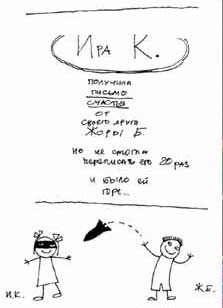 ИРА К.
ПОЛУЧИЛА
ПИСЬМО
СЧАСТЬЯ
ОТ
СВОЕГО ДРУГА
ЖОРЫ Б.
НО НЕ СМОГЛА
ПЕРЕПИСАТЬ ЕГО 20 РАЗ
И БЫЛО ЕЙ
ГОРЕ...
И.К.
Ж.Б.